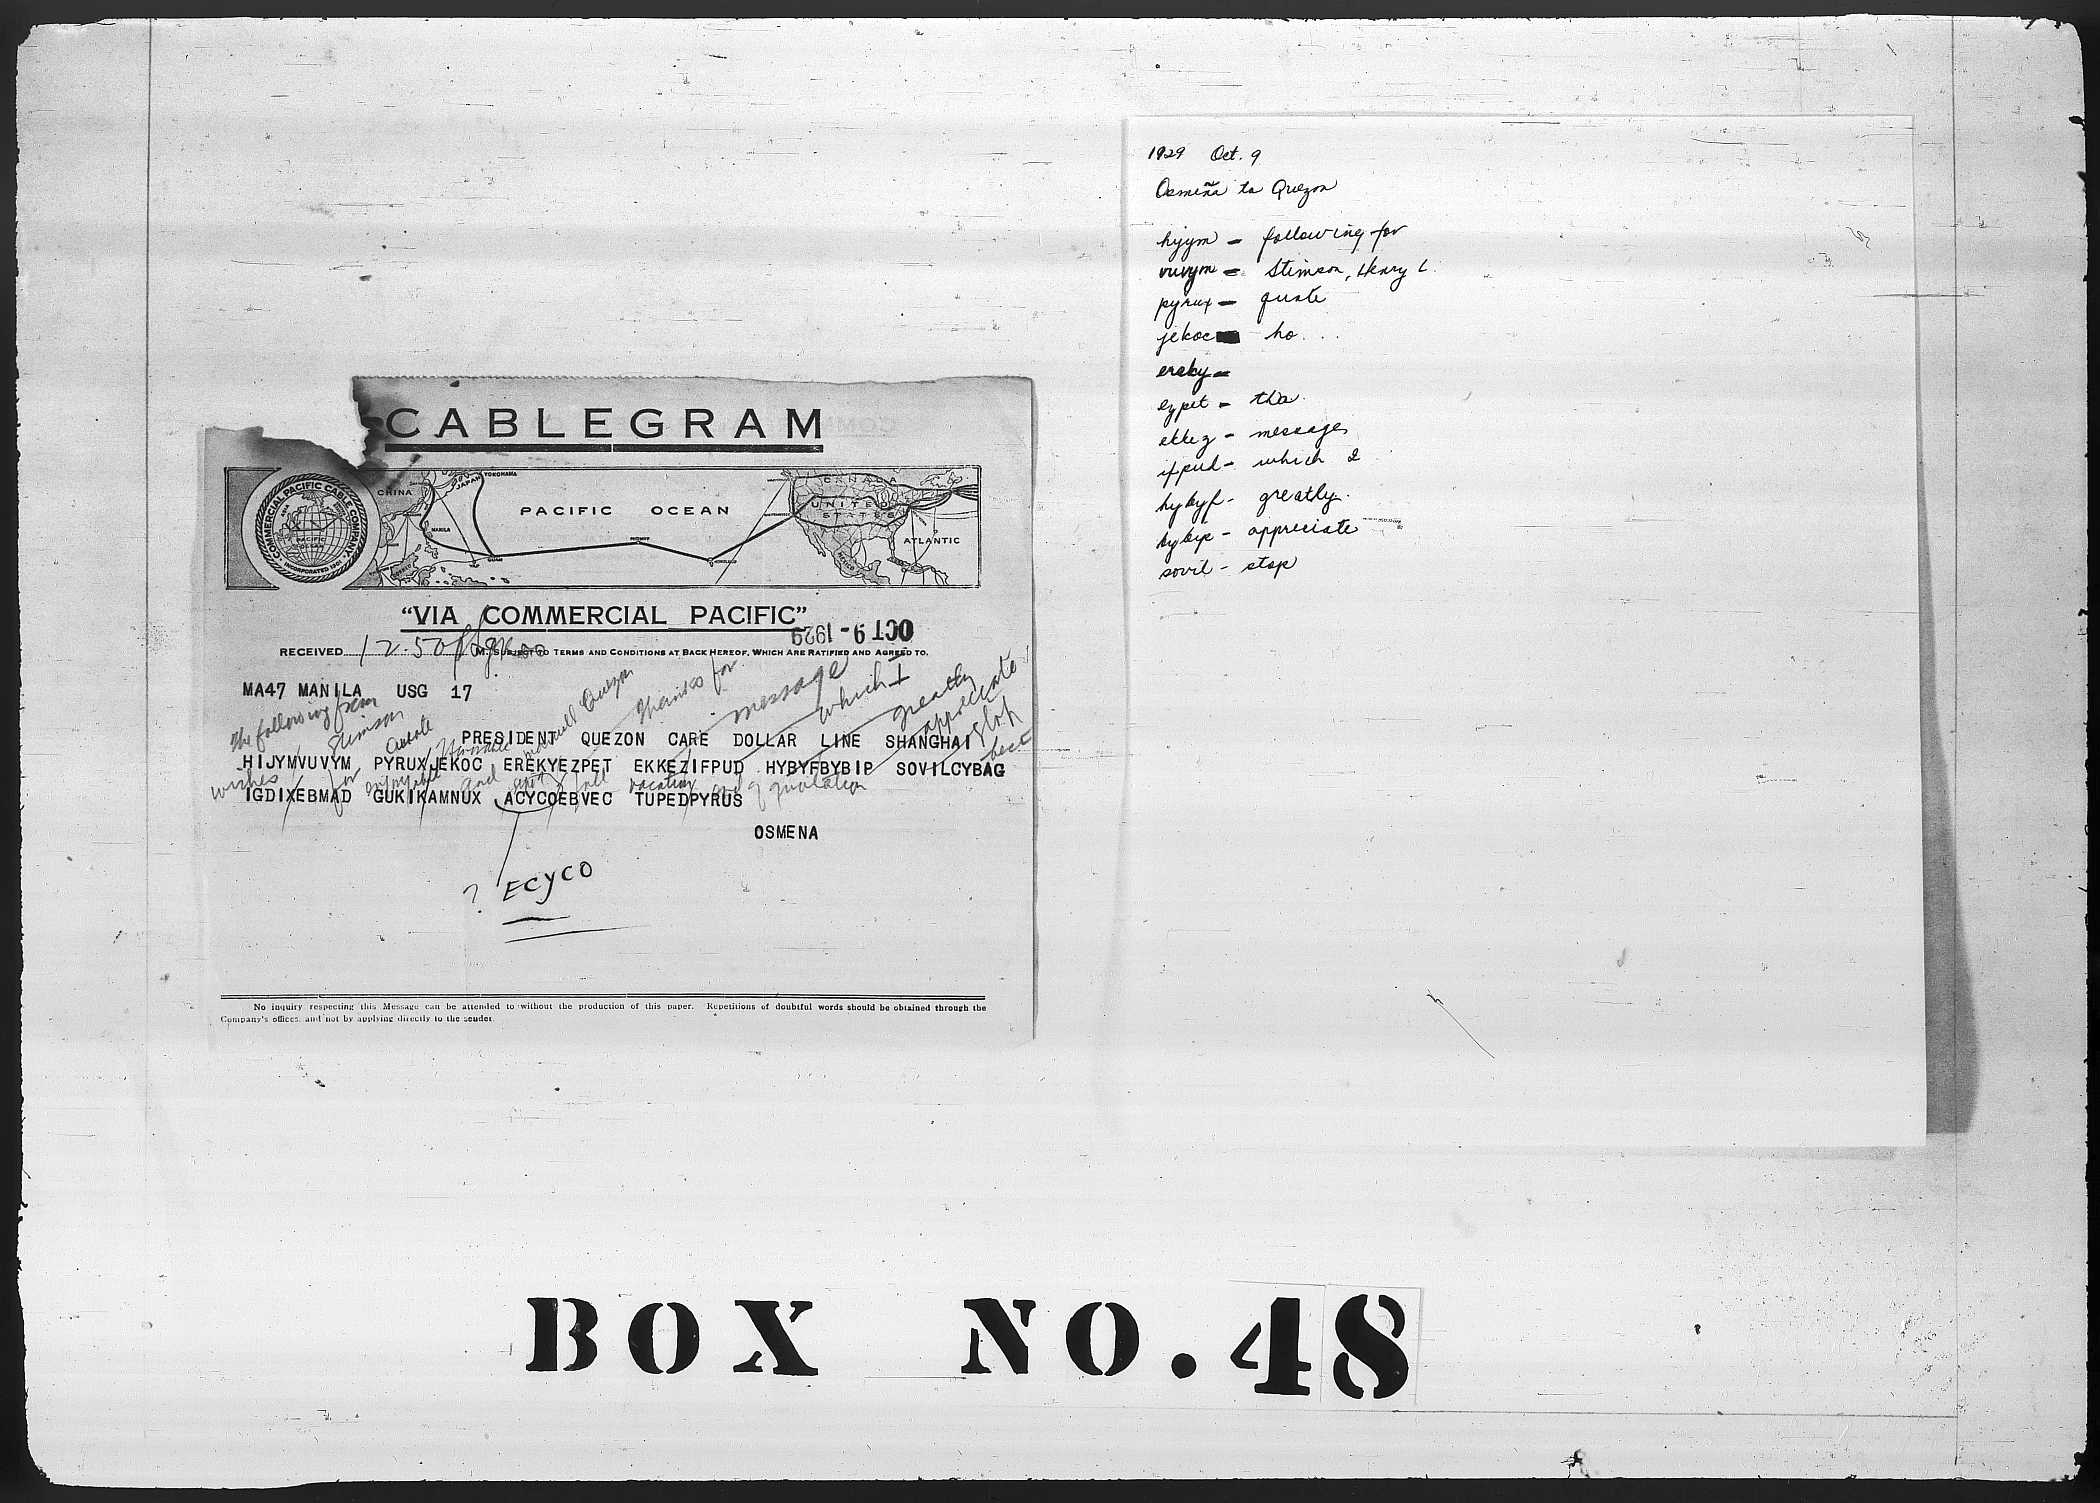 CABLEGRAM
COMMERCIAL PACIFIC CABLE COMPANY
INCORPORATED 1901
CHINA
JAPAN
YOKOHAMA
MANILA
GUAM
PACIFIC OCEAN
MIDWAY
HONOLULU
CANADA
UNITED STATES
MEXICO
ATLANTIC
"VIA COMMERCIAL PACIFIC"
OCT 9 - 1929
RECEIVED 12.50 M. SUBJECT TO TERMS AND CONDITIONS AT BACK HEREOF, WHICH ARE RATIFIED AND AGREED TO.
MA47 MANILA USG 17
The following from Stimson Quote Honorable Manuel Quezon Thanks for message which I greatly appreciate stop best
PRESIDENT QUEZON CARE DOLLAR LINE SHANGHAI
HIJYMVUVYM PYRUXJEKOC EREKYEZPET EKKEZIFPUD HYBYFBYBIP SOVILCYBAG
wishes for enjoyable and vacation end of quotation
IGDIXEBMAD GUKIKAMNUX ACYCOEBVEC TUPEDPYRUS
OSMENA
? ECYCO
No inquiry respecting this Message can be attended to without the production of this paper. Repetitions of doubtful words should be obtained through the
Company's offices, and not by applying directly to the sender.
1929 Oct. 9
Osmeña to Quezon
hijym - following for
vuvym - Stimson, Henry L.
pyrux - quote
jekoc ho...
ereky -
ezpet - tha
ekkez - message
ifpud - which I
hybyf - greatly
bybip - appreciate
sovil - stop
BOX NO. 48